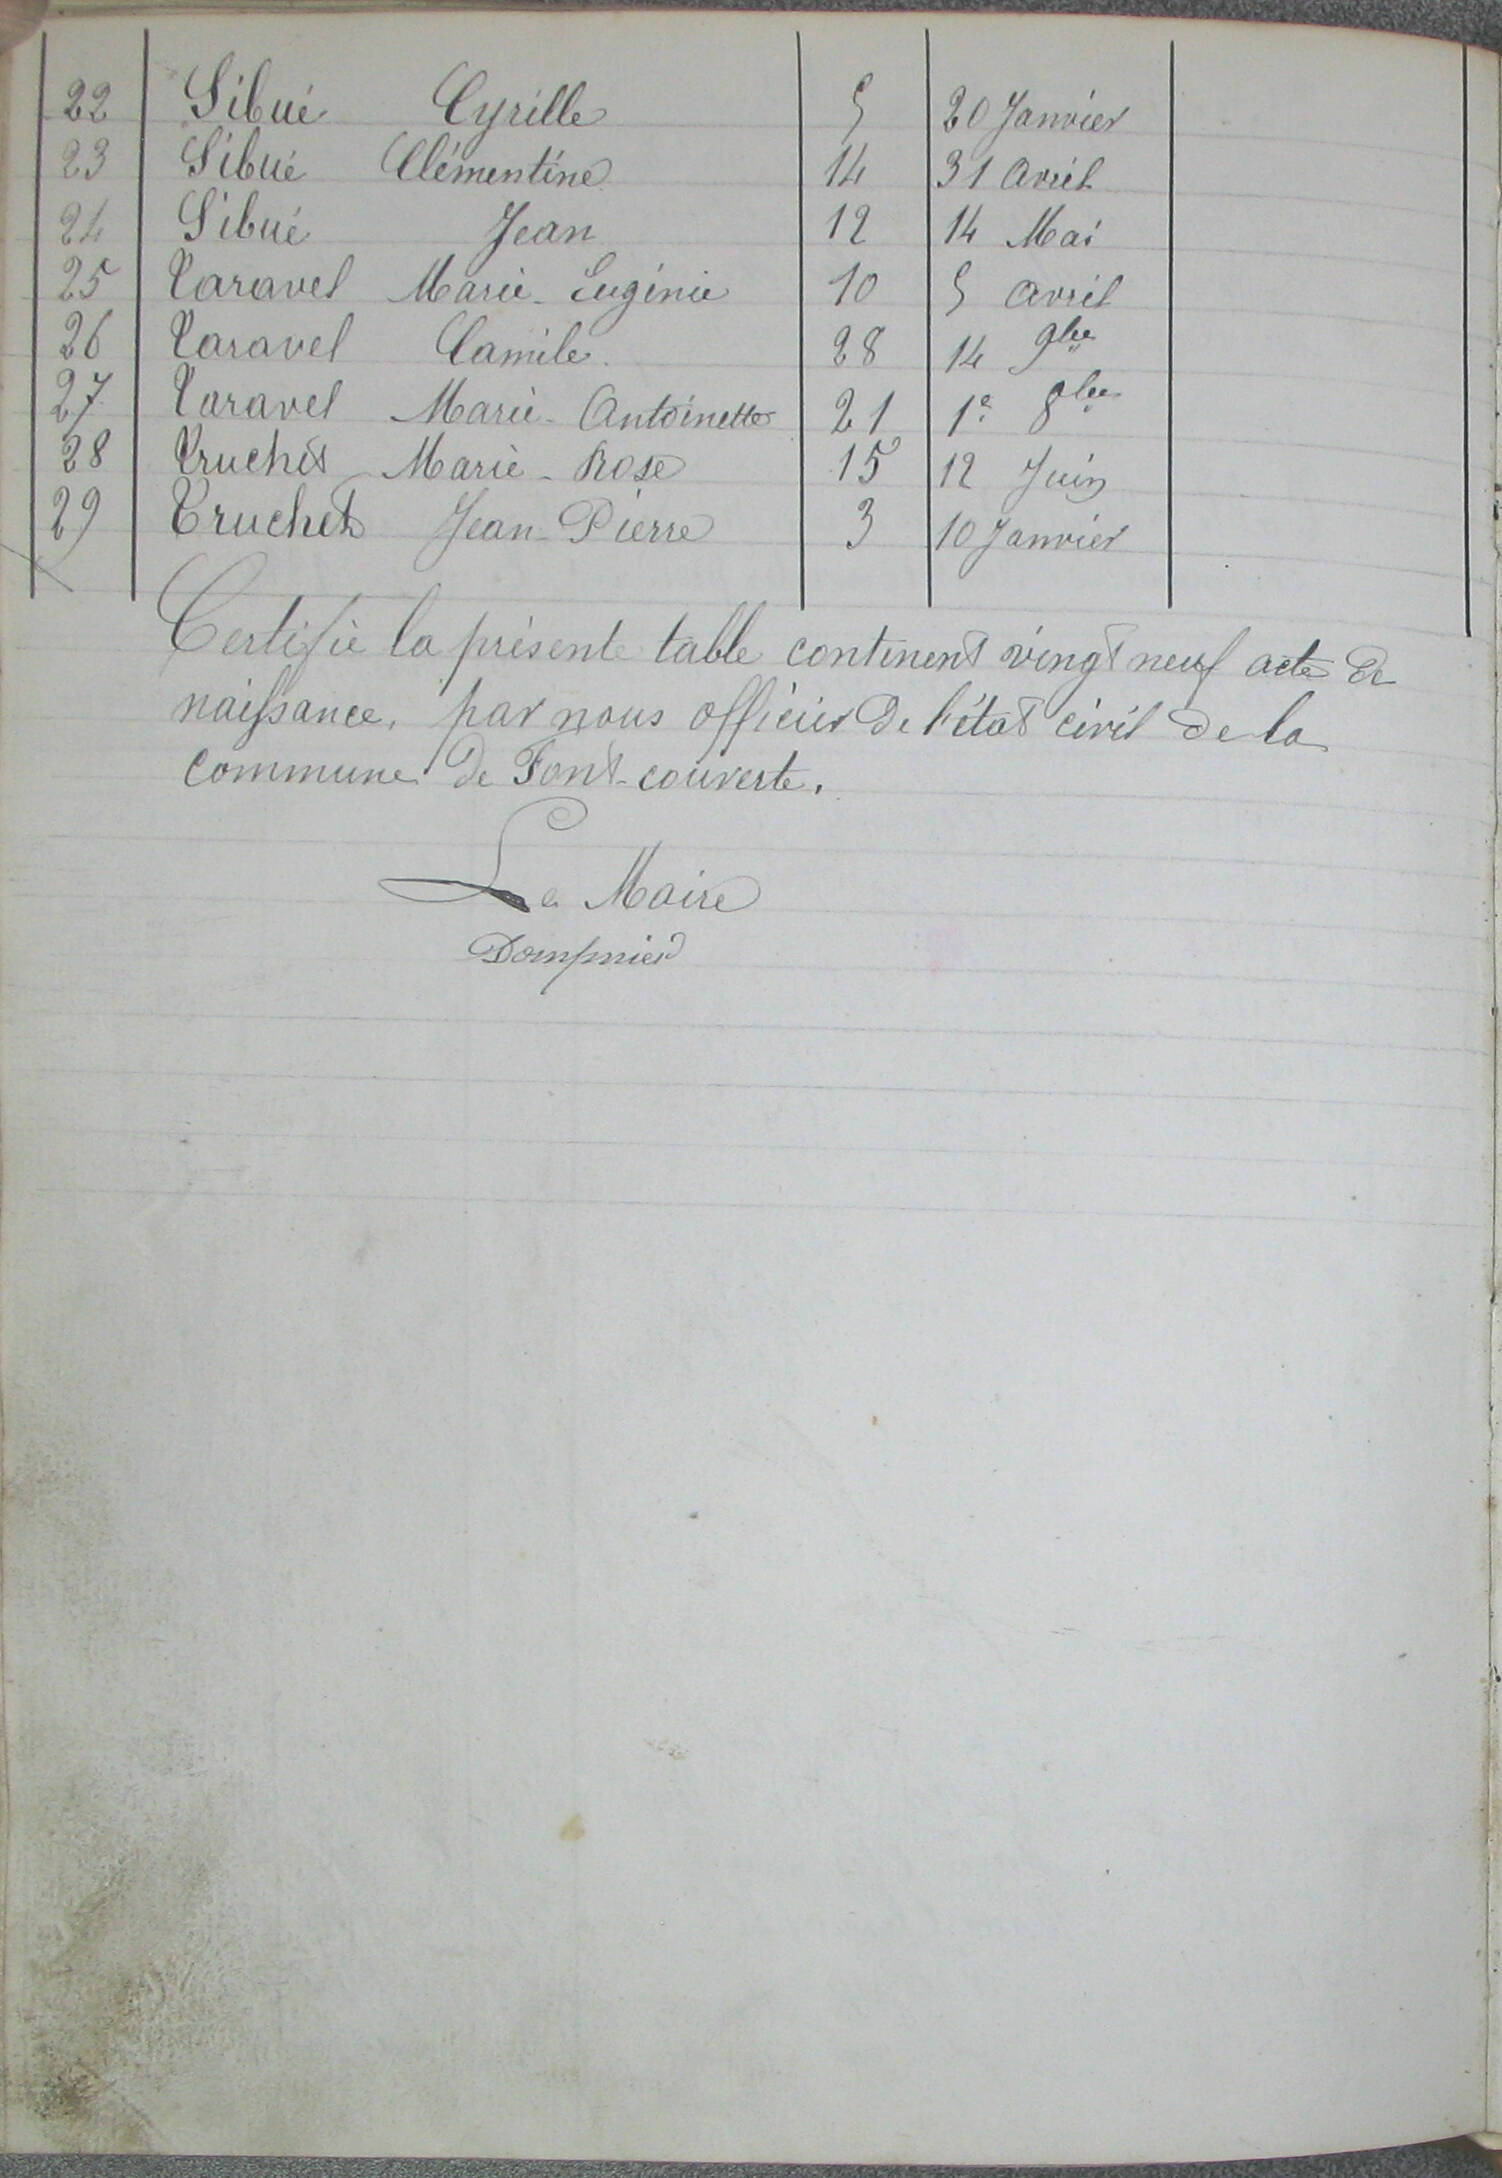 22 Sibué Cyrille 5 20 Janvier
23 Sibué Clémentine 14 31 Avril
24 Sibué Jean 12 14 Mai
25 Taravel Marie-Eugénie 10 5 Avril
26 Taravel Camile. 28 14 9bre
27 Taravel Marie-Antoinette 21 1e 8bre
28 Truchet Marie-Rose 15 12 Juin
29 Truchet Jean-Pierre 3 10 Janvier
Certifié la présente table continent vingt neuf acte de
naissance, par nous officier de l'état civil de la
commune de Font-couverte.
Le Maire
Dompnier